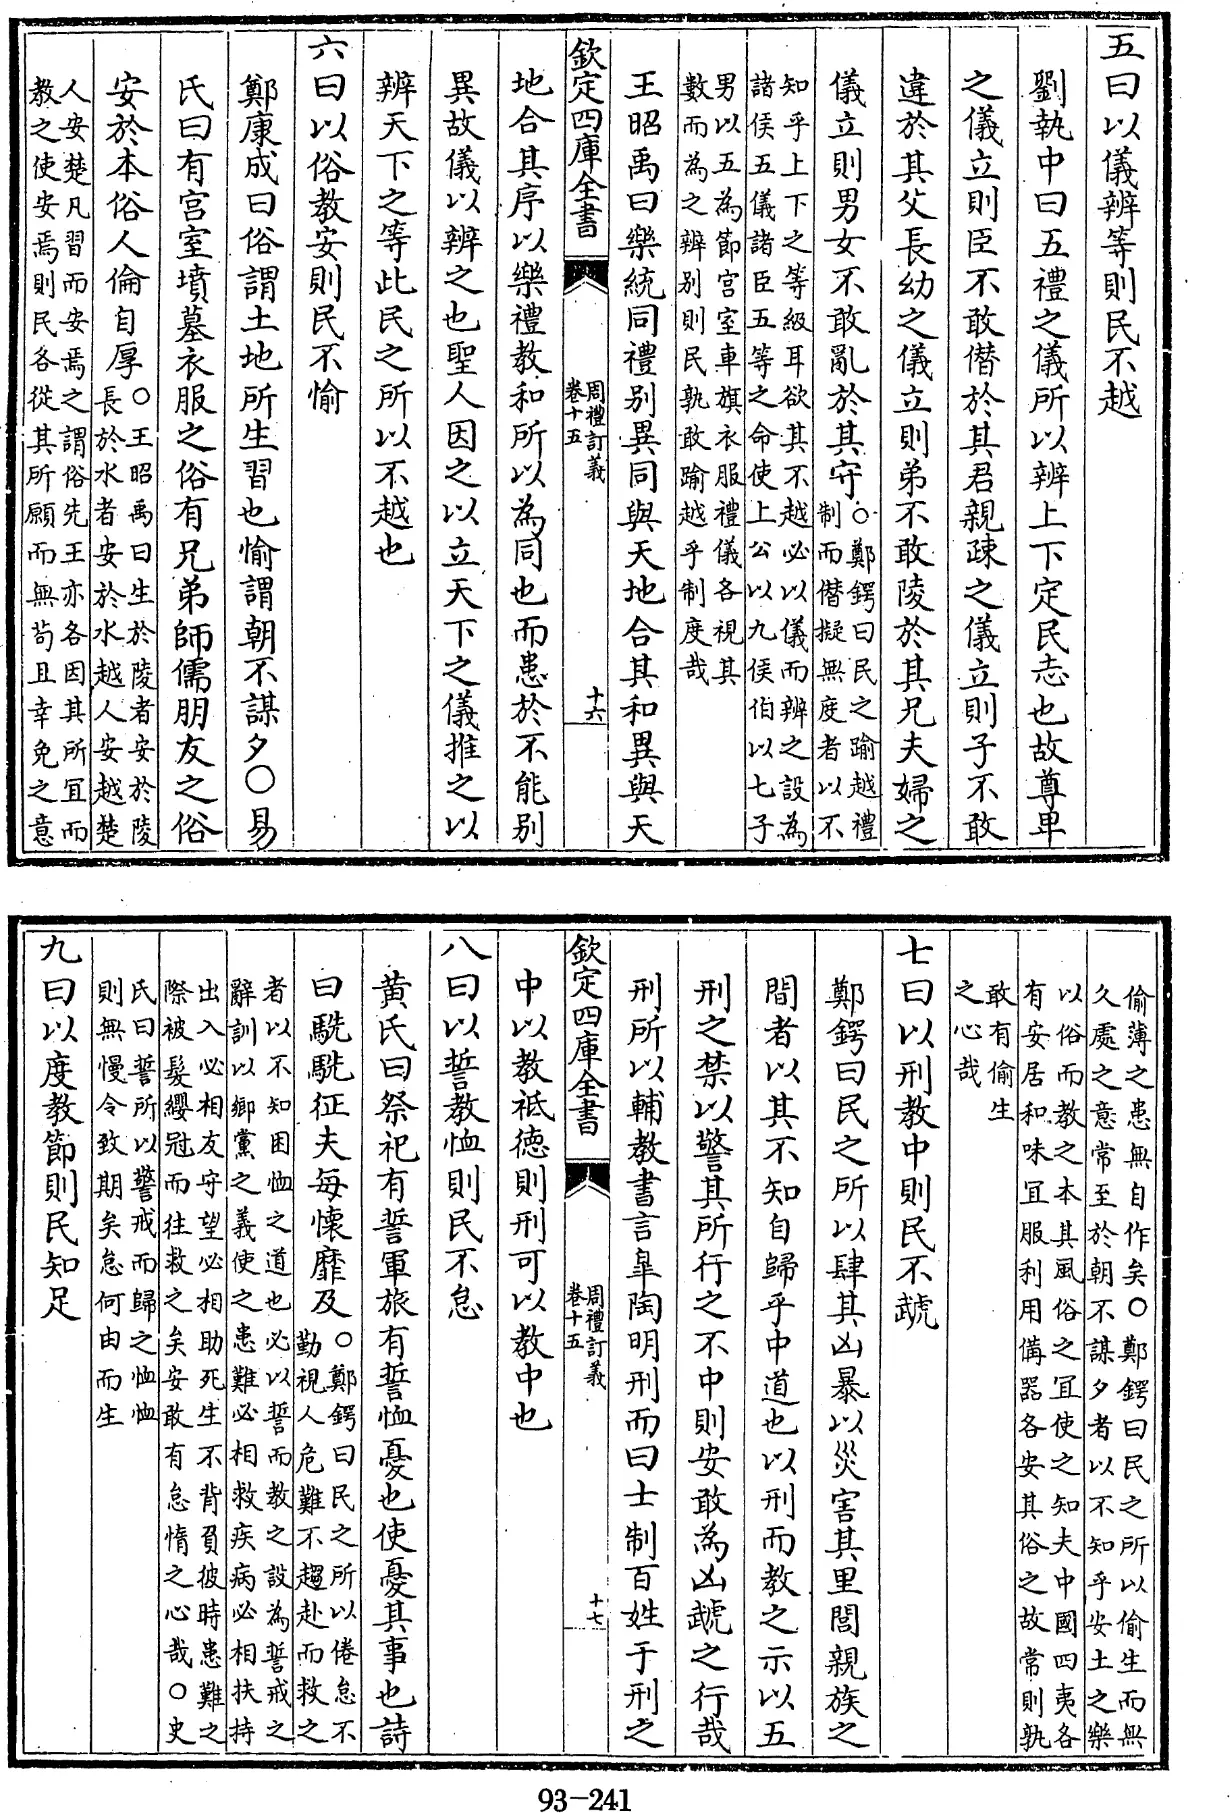 五曰以儀辨等則民不越
劉執中曰五禮之儀所以辨上下定民志也故尊卑
之儀立則臣不敢僭於其君親疎之儀立則子不敢
違於其父長幼之儀立則弟不敢陵於其兄夫婦之
儀立則男女不敢亂於其守○鄭鍔曰民之踰越禮
制而僭擬無度者以不
知乎上下之等級耳欲其不越必以儀而辨之設為
諸侯五儀諸臣五等之命使上公以九侯伯以七子
男以五為節宮室車旗衣服禮儀各視其
數而為之辨别則民孰敢踰越乎制度哉
王昭禹曰樂統同禮别異同與天地合其和異與天
欽定四庫全書
周禮訂義
卷十五
十六
地合其序以樂禮教和所以為同也而患於不能别
異故儀以辨之也聖人因之以立天下之儀推之以
辨天下之等此民之所以不越也
六曰以俗教安則民不愉
鄭康成曰俗謂土地所生習也愉謂朝不謀夕○易
氏曰有宫室墳墓衣服之俗有兄弟師儒朋友之俗
安於本俗人倫自厚○王昭禹曰生於陵者安於陵
長於水者安於水越人安越楚
人安楚凡習而安焉之謂俗先王亦各因其所宜而
教之使安焉則民各從其所願而無茍且幸免之意
偷薄之患無自作矣○鄭鍔曰民之所以偷生而無
久處之意常至於朝不謀夕者以不知乎安土之樂
以俗而教之本其風俗之宜使之知夫中國四夷各
有安居和味宜服利用備器各安其俗之故常則孰
敢有偷生
之心哉
七曰以刑教中則民不虣
鄭鍔曰民之所以肆其凶暴以災害其里閭親族之
間者以其不知自歸乎中道也以刑而教之示以五
刑之禁以警其所行之不中則安敢為凶虣之行哉
刑所以輔教書言臯陶明刑而曰士制百姓于刑之
欽定四庫全書
周禮訂義
卷十五
十七
中以教祗德則刑可以教中也
八曰以誓教恤則民不怠
黄氏曰祭祀有誓軍旅有誓恤憂也使憂其事也詩
曰駪駪征夫每懷靡及○鄭鍔曰民之所以倦怠不
勤視人危難不趨赴而救之
者以不知困恤之道也必以誓而教之設為誓戒之
辭訓以鄉黨之義使之患難必相救疾病必相扶持
出入必相友守望必相助死生不背負彼時患難之
際被髮纓冠而往救之矣安敢有怠惰之心哉○史
氏曰誓所以警戒而歸之恤恤
則無慢令致期矣怠何由而生
九曰以度教節則民知足
93-241